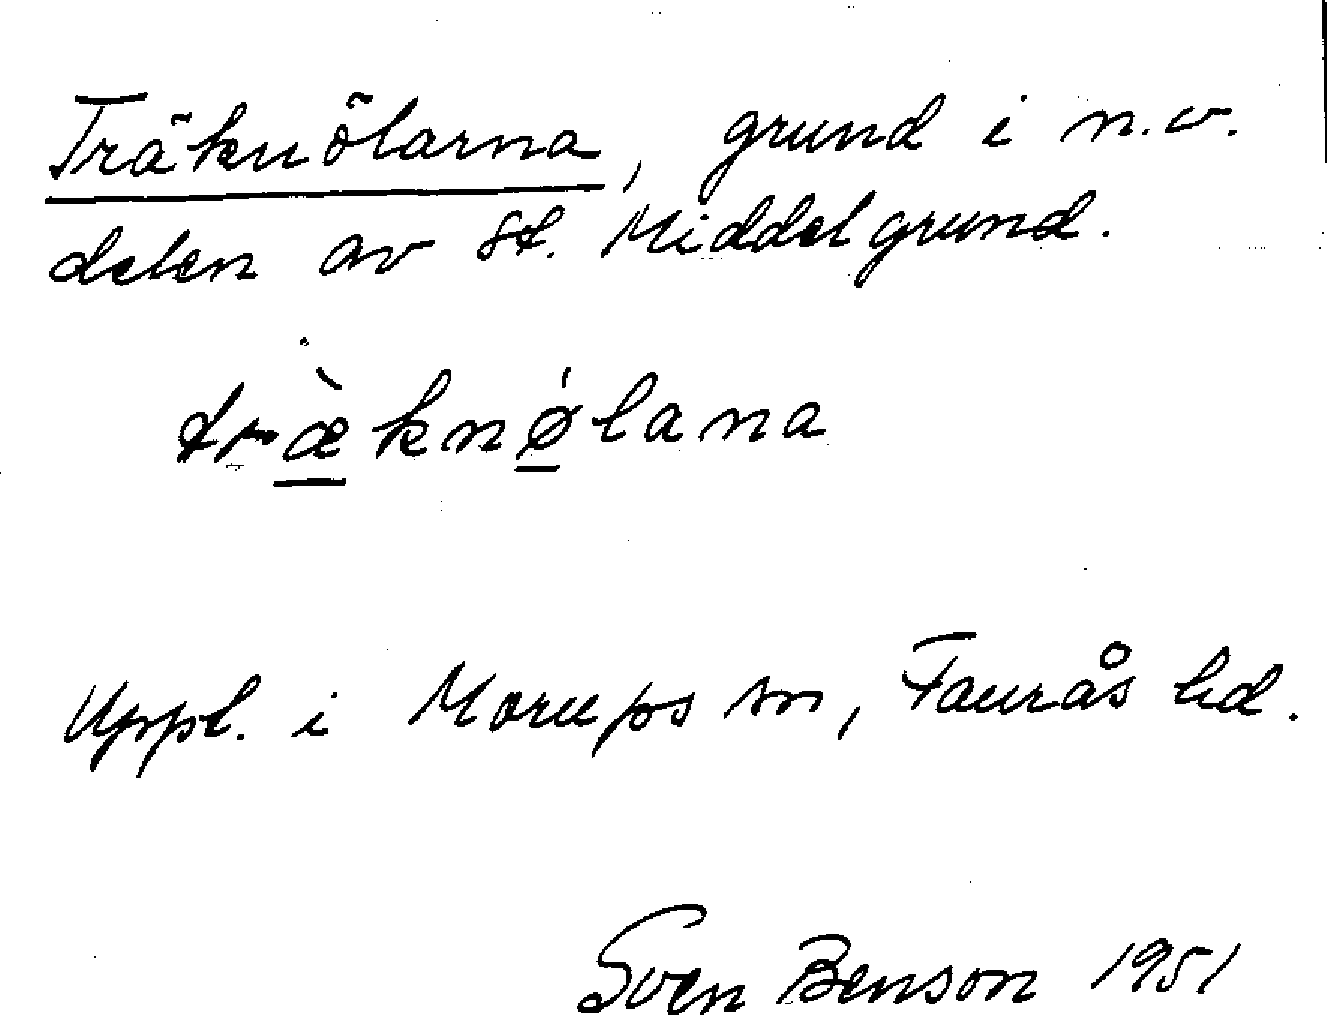 Träknölarna, grund i n.v.
delen av St. Middelgrund.
træ̀knǿlana
Uppl. i Morups sn, Faurås hd.
Sven Benson 1951